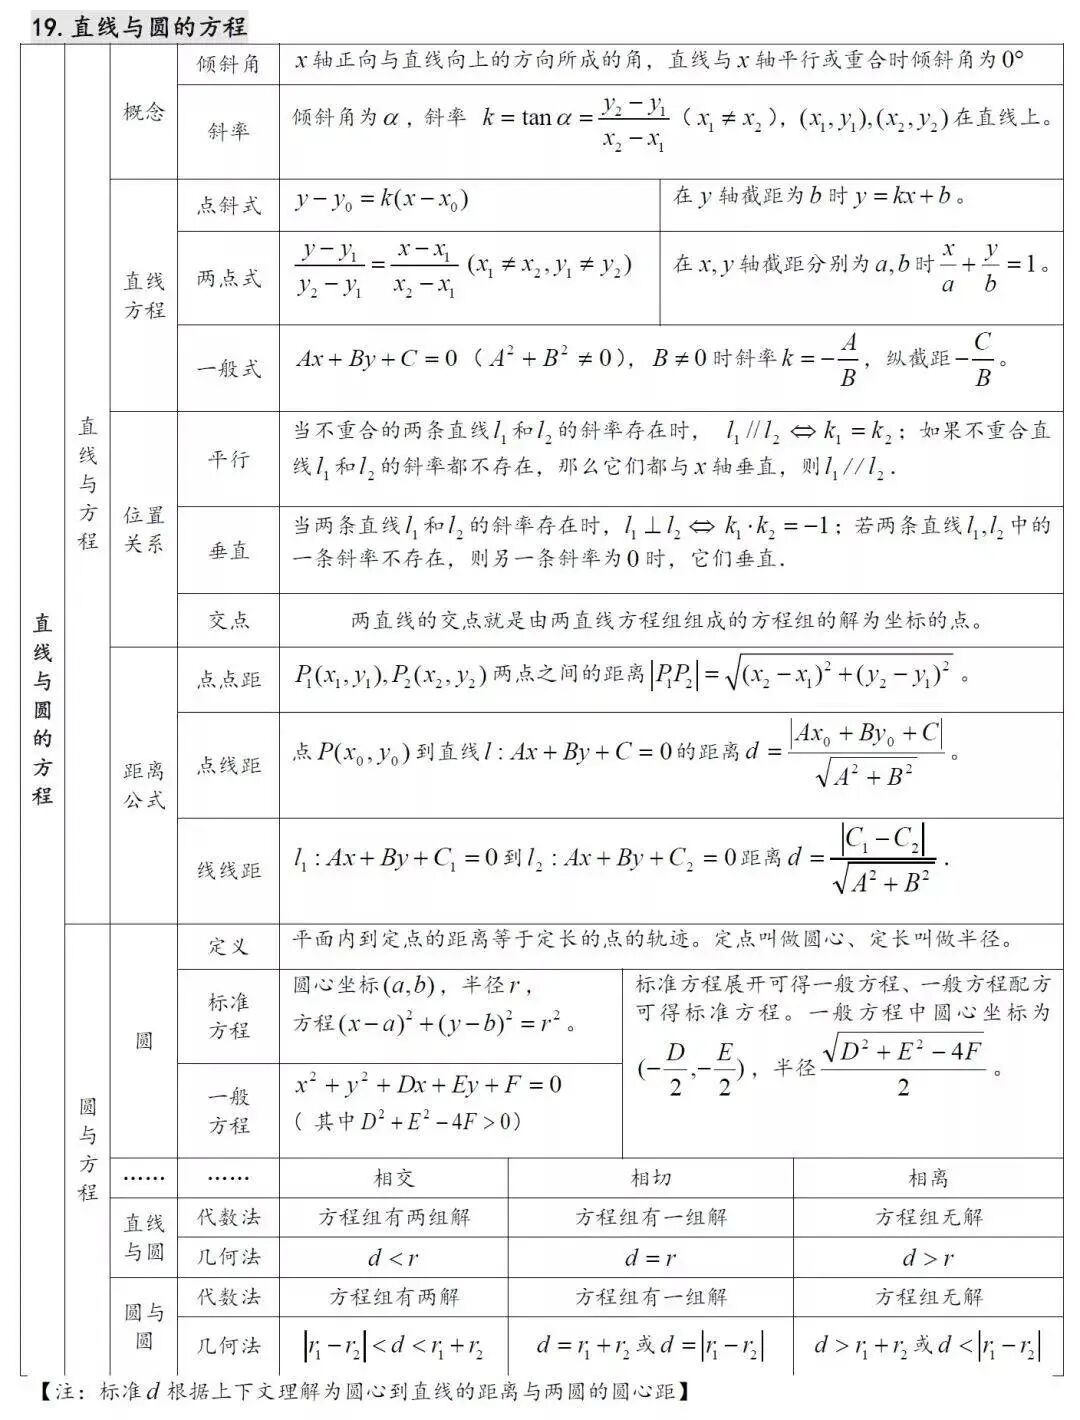 19.直线与圆的方程
直线与圆的方程
直线与方程
概念
倾斜角
x轴正向与直线向上的方向所成的角，直线与x轴平行或重合时倾斜角为0°
斜率
倾斜角为α，斜率 k=tanα=(y₂-y₁)/(x₂-x₁)（x₁≠x₂），(x₁,y₁),(x₂,y₂)在直线上。
直线
方程
点斜式
y-y₀=k(x-x₀)
在y轴截距为b时y=kx+b。
两点式
(y-y₁)/(y₂-y₁)=(x-x₁)/(x₂-x₁) (x₁≠x₂,y₁≠y₂)
在x,y轴截距分别为a,b时x/a+y/b=1。
一般式
Ax+By+C=0（A²+B²≠0），B≠0时斜率k=-A/B，纵截距-C/B。
位置
关系
平行
当不重合的两条直线l₁和l₂的斜率存在时， l₁//l₂⇔k₁=k₂；如果不重合直
线l₁和l₂的斜率都不存在，那么它们都与x轴垂直，则l₁//l₂.
垂直
当两条直线l₁和l₂的斜率存在时，l₁⊥l₂⇔k₁·k₂=-1；若两条直线l₁,l₂中的
一条斜率不存在，则另一条斜率为0时，它们垂直.
交点
两直线的交点就是由两直线方程组组成的方程组的解为坐标的点。
距离
公式
点点距
P₁(x₁,y₁),P₂(x₂,y₂)两点之间的距离|P₁P₂|=√((x₂-x₁)²+(y₂-y₁)²)。
点线距
点P(x₀,y₀)到直线l:Ax+By+C=0的距离d=|Ax₀+By₀+C|/√(A²+B²)。
线线距
l₁:Ax+By+C₁=0到l₂:Ax+By+C₂=0距离d=|C₁-C₂|/√(A²+B²).
圆与方程
圆
定义
平面内到定点的距离等于定长的点的轨迹。定点叫做圆心、定长叫做半径。
标准
方程
圆心坐标(a,b)，半径r，
方程(x-a)²+(y-b)²=r²。
标准方程展开可得一般方程、一般方程配方
可得标准方程。一般方程中圆心坐标为
(-D/2,-E/2)，半径√(D²+E²-4F)/2。
一般
方程
x²+y²+Dx+Ey+F=0
（其中D²+E²-4F>0）
…… …… 相交 相切 相离
直线
与圆
代数法 方程组有两组解 方程组有一组解 方程组无解
几何法 d<r d=r d>r
圆与
圆
代数法 方程组有两解 方程组有一组解 方程组无解
几何法 |r₁-r₂|<d<r₁+r₂ d=r₁+r₂或d=|r₁-r₂| d>r₁+r₂或d<|r₁-r₂|
【注：标准d根据上下文理解为圆心到直线的距离与两圆的圆心距】